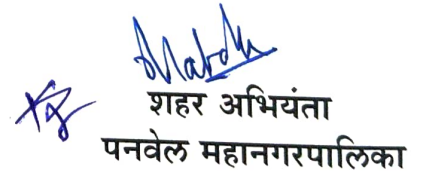 शहर अभियंता
पनवेल महानगरपालिका